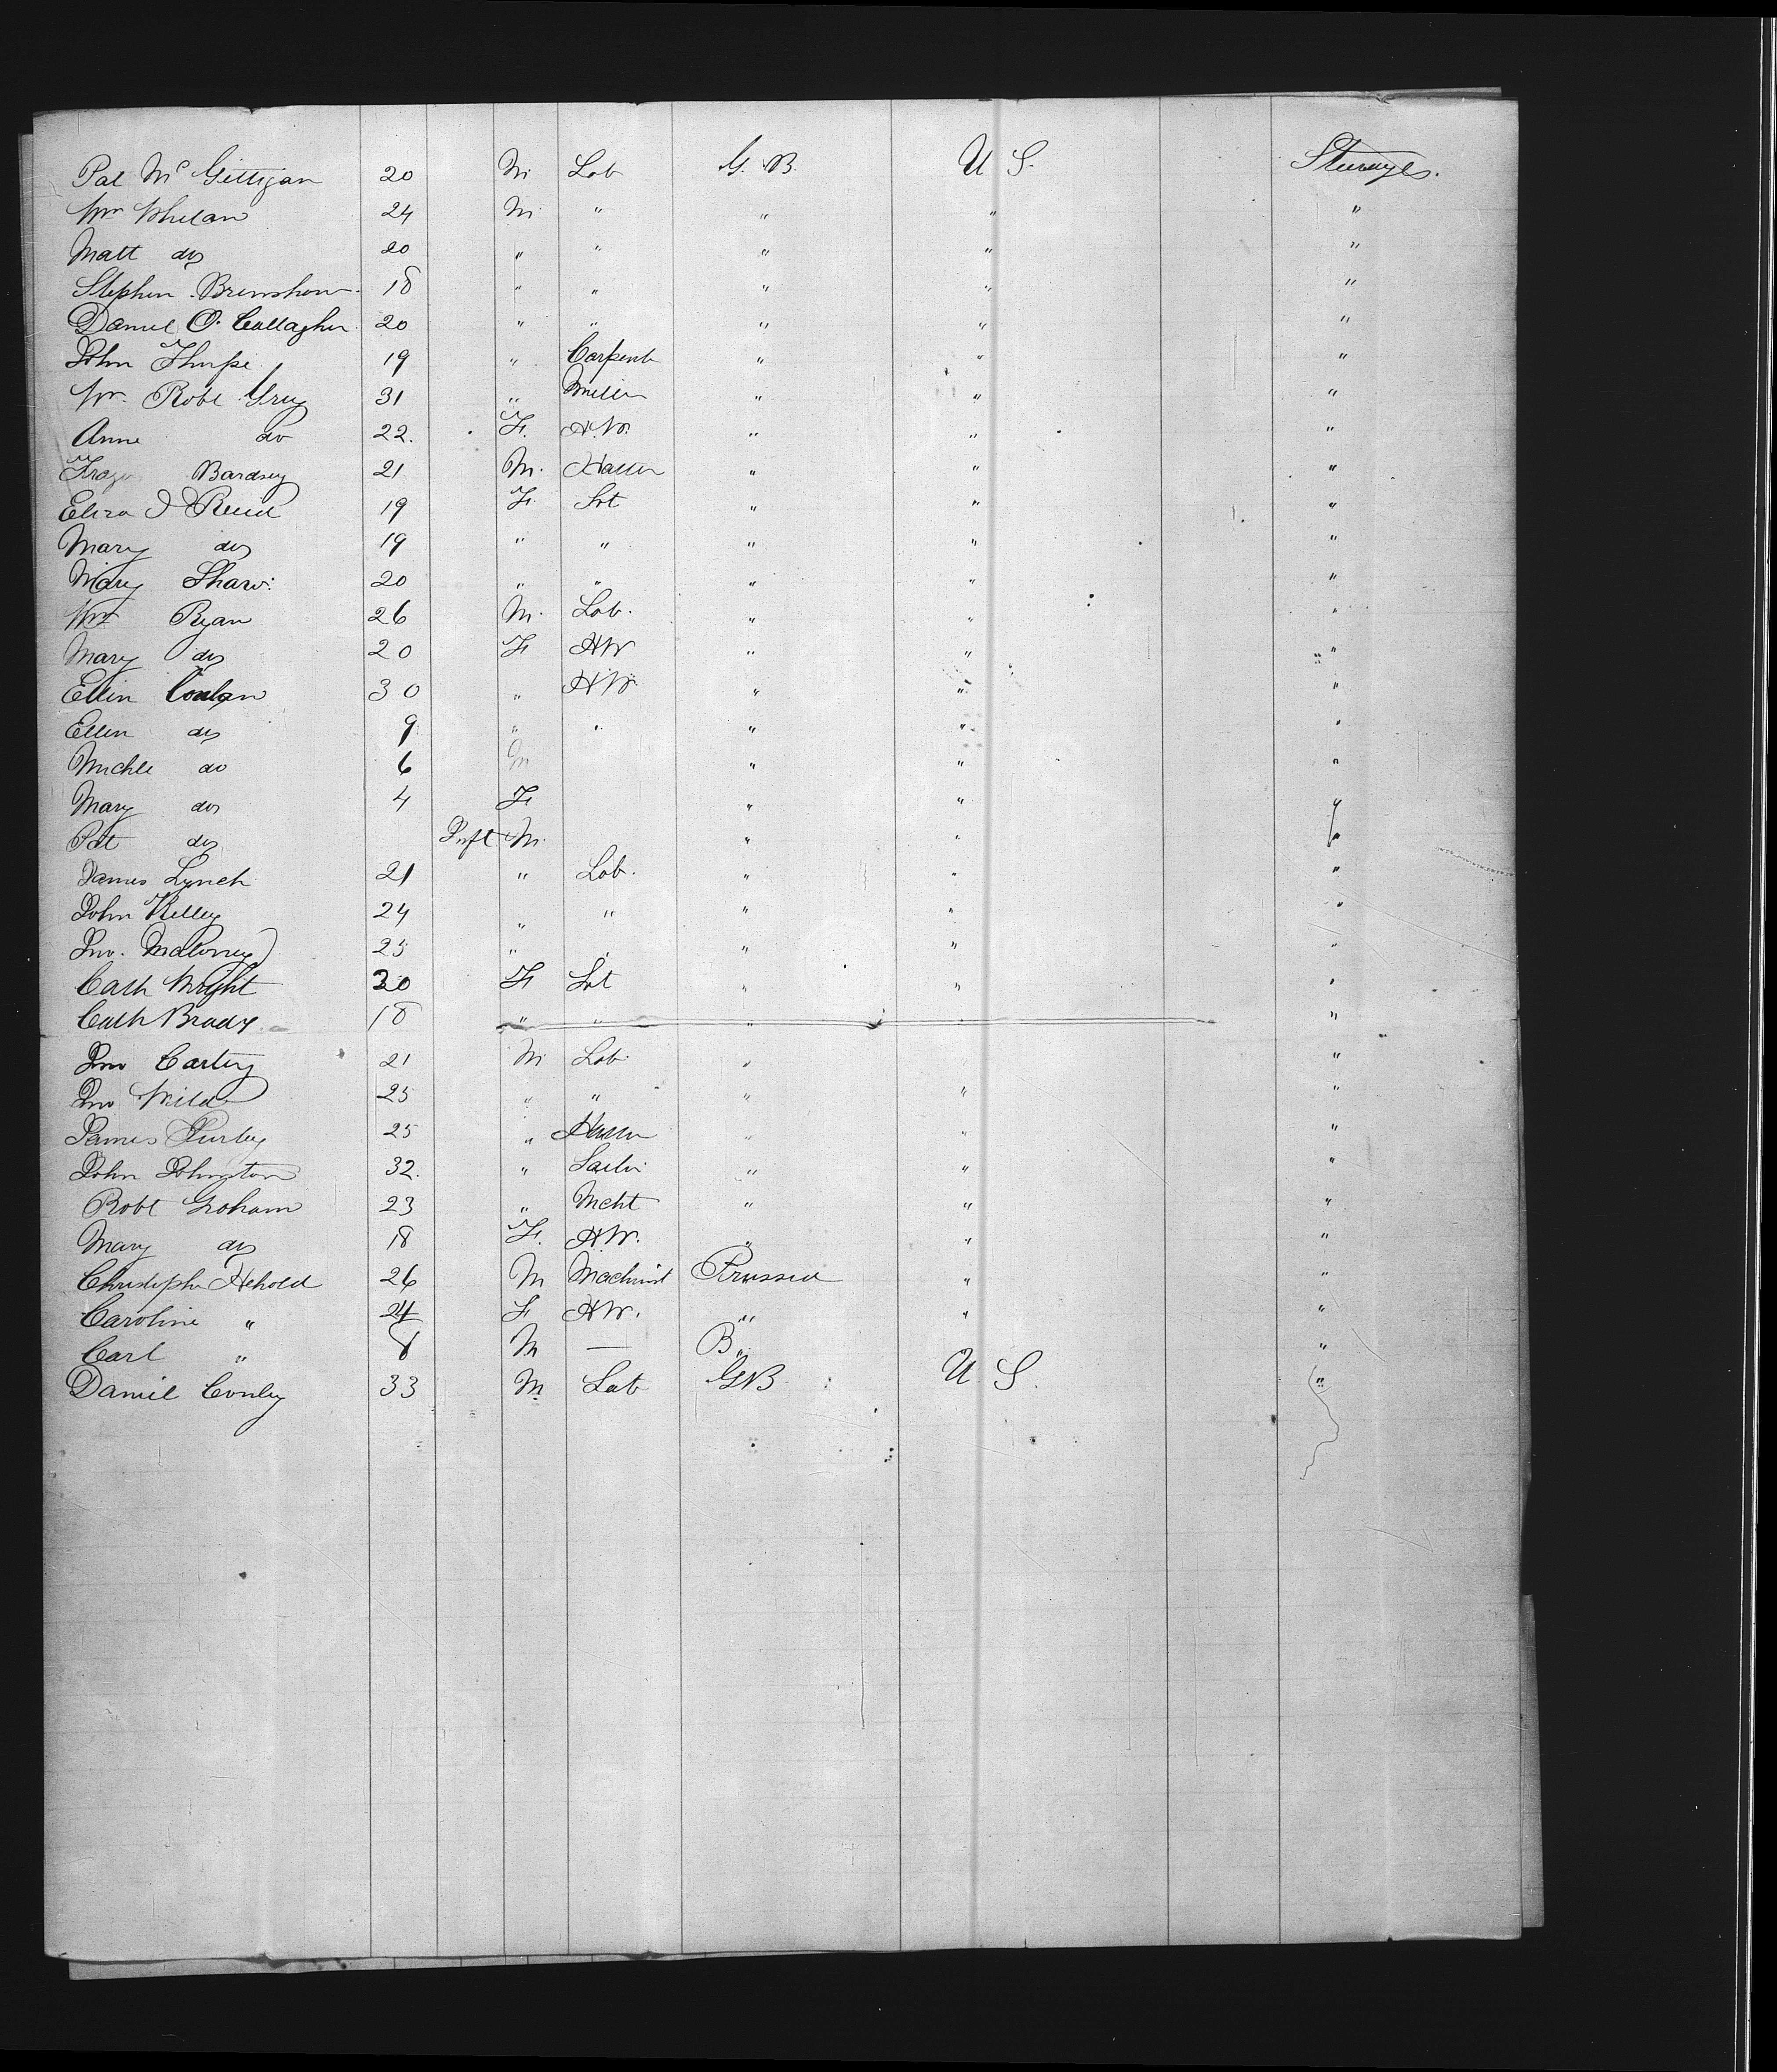 Pat McGettigan 20 M Lab G. B. U S. Steerage.
Wm Whelan 24 M " " " "
Matt do 20 " " " " "
Stephen 18 " " " " "
Daniel O. Callagher 20 " " " " "
John Thorpe 19 " Carpent " " "
Wm. Robt Grey 31 " Miller " " "
Anne do 22. F. H.W. " " "
Bardsey 21 M. " " "
Eliza J Reid 19 F. Svt " " "
Mary do 19 " " " " "
Mary Shaw. 20 " " " " "
Wm Ryan 26 M. Lab. " " "
Mary do 20 F HW " " "
Ellin Conlan 30 " HW. " " "
Ellen do 9 " " " " "
Michle do 6 M " " "
Mary do 4 F " " "
Pat do Inft M. " " "
James Lynch 21 " Lab. " " "
John Kelley 24 " " " " "
Jno. Maloney 25 " " " " "
Cath Wright 30 F Svt " " "
Cath Brady 18 " " " " "
Jno Carty 21 M Lab. " "
Jno Wild 25 " " " " "
James 25 " " " "
John Johnston 32. " Sailor " " "
Robt Graham 23 " Mcht " " "
Mary do 18 F. H.W. " " "
Christophe Hehold 26 M Machinist Prussia " "
Caroline " 24 F HW. " " "
Carl " 8 M — B " "
Daniel Conley 33 M Lab GB U S. "